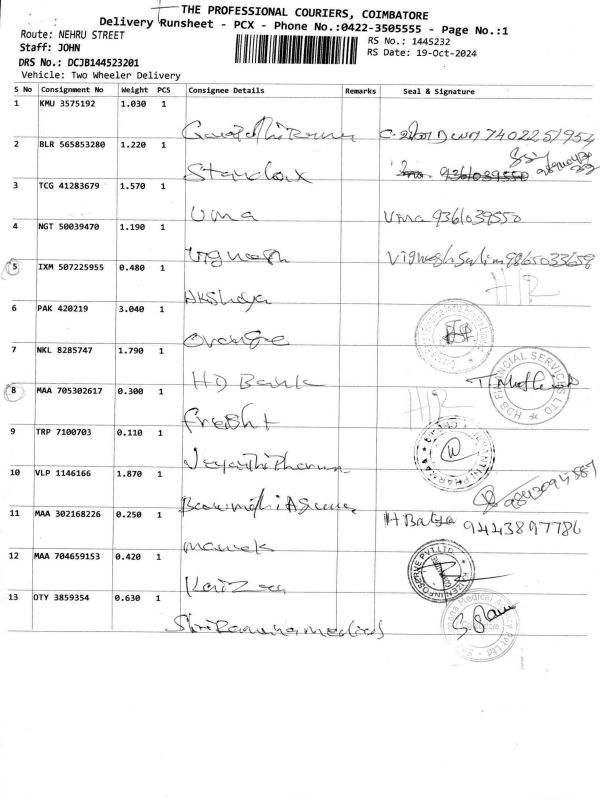 THE PROFESSIONAL COURIERS, COIMBATORE
Delivery Runsheet - PCX - Phone No.:0422-3505555 - Page No.:1
Route: NEHRU STREET
RS No.: 1445232
Staff: JOHN
RS Date: 19-Oct-2024
DRS No.: DCJB144523201
Vehicle: Two Wheeler Delivery
S No Consignment No Weight PCS Consignee Details Remarks Seal & Signature
1 KMU 3575192 1.030 1
7402251954
2 BLR 565853280 1.220 1
9361039550
3 TCG 41283679 1.570 1
Uma Uma 9361039550
4 NGT 50039470 1.190 1
Vignesh Vignesh Salim 9865033659
5 IXM 507225955 0.480 1
Akshaya HR
6 PAK 420219 3.040 1
Orange
7 NKL 8285747 1.790 1
HD Bank
HDB FINANCIAL SERVICES LTD
8 MAA 705302617 0.300 1
Freight HR
9 TRP 7100703 0.110 1
Jeyanthi Pharma
10 VLP 1146166 1.870 1
11 MAA 302168226 0.250 1
9443897786
12 MAA 704659153 0.420 1
KAIZEN INFOSERVE PVT.LTD
13 OTY 3859354 0.630 1
Medical Agency Pvt Ltd